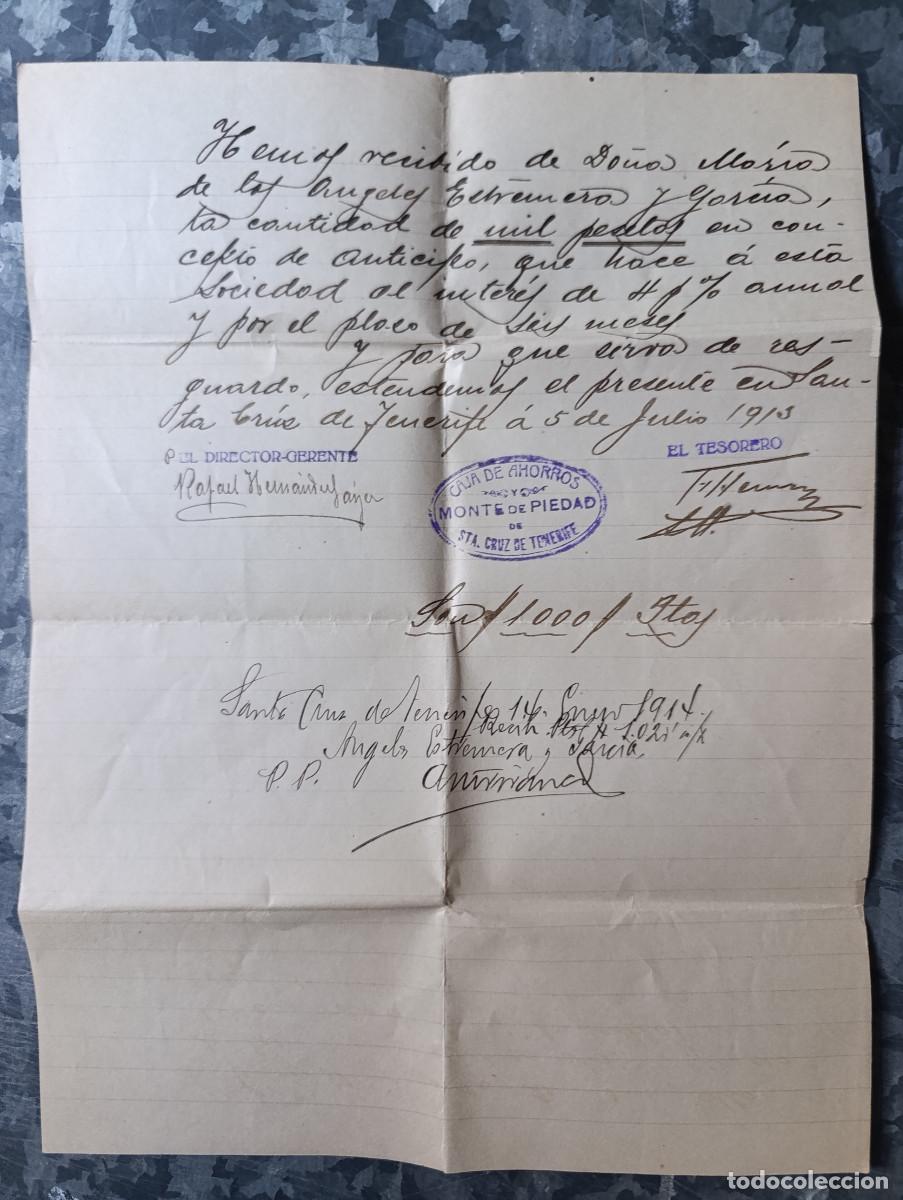 Hemos recibido de Doña María
de los Angeles Estremera y García,
la cantidad de mil pesetas en con-
cepto de anticipo, que hace á esta
Sociedad al interés de 4 p% anual
y por el plazo de seis meses
Y para que sirva de res-
guardo, estendemos el presente en San-
ta Crúz de Tenerife á 5 de Julio 1913
P EL DIRECTOR-GERENTE
EL TESORERO
Rafael Hernández
CAJA DE AHORROS
Y
MONTE DE PIEDAD
DE
STA. CRUZ DE TENERIFE
Son $ 1000 $ Ptas
Santa Cruz de Tenerife 14 Enero 1914.
Recibí Ptas
Angeles Estremera y García
P. P.
todocoleccion